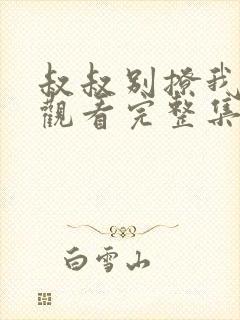 叔叔别撩我
觀看完整集
白雪山